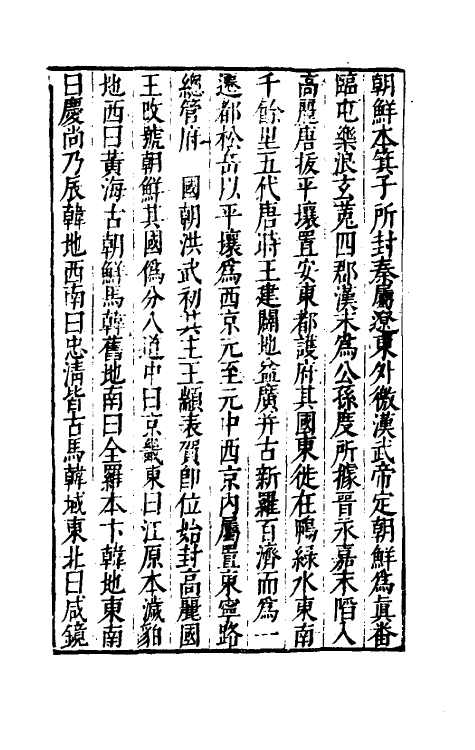 朝鮮本箕子所封秦屬遼東外徼漢武帝定朝鮮為真番
臨屯樂浪玄菟四郡漢末為公孫度所據晉永嘉末陷入
高麗唐拔平壤置安東都護府其國東徙在鴨綠水東南
千餘里五代唐時王建闢地益廣并古新羅百濟而為一
遷都松岳以平壤為西京元至元中西京內屬置東寧路
總管府　國朝洪武初其主王顓表賀即位始封高麗國
王改號朝鮮其國僞分八道中曰京畿東曰江原本濊貊
地西曰黃海古朝鮮馬韓舊地南曰全羅本卞韓地東南
曰慶尚乃辰韓地西南曰忠清皆古馬韓域東北曰咸鏡